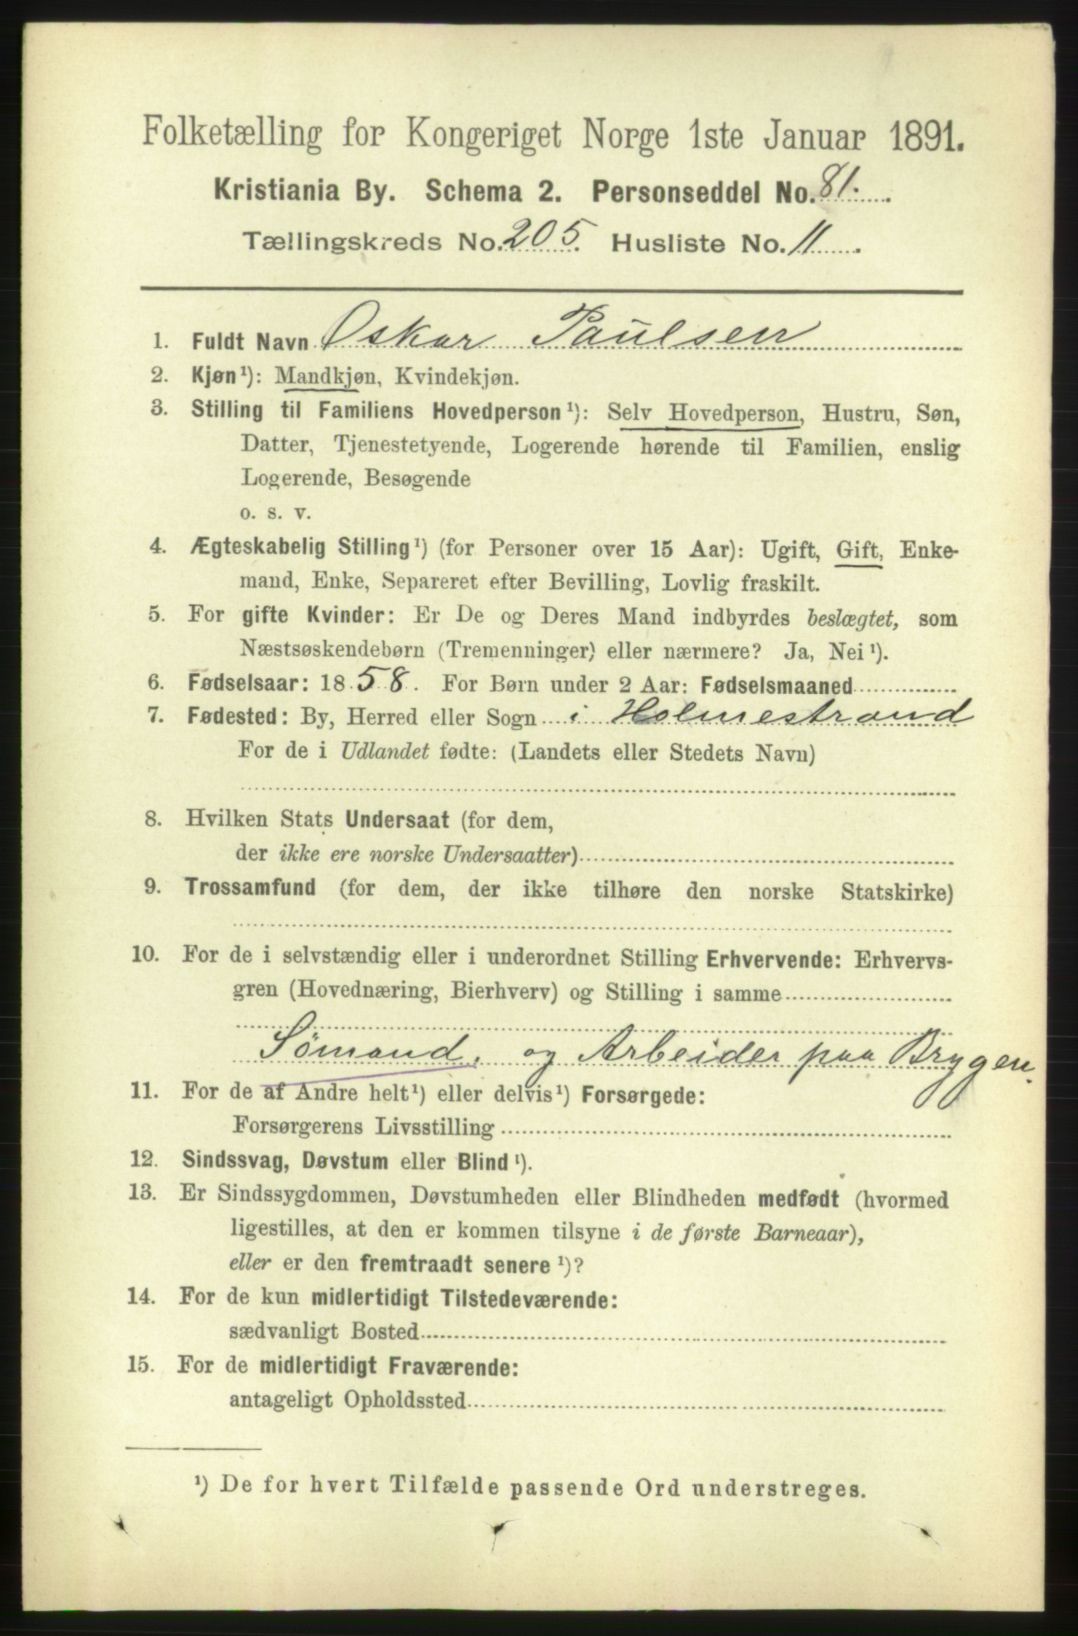 Folketælling for Kongeriget Norge 1ste Januar 1891.
Kristiania By. Schema 2. Personseddel No. 81.
Tællingskreds No. 205. Husliste No. 11
1. Fuldt Navn Oskar Paulsen
2. Kjøn¹): Mandkjøn, Kvindekjøn.
3. Stilling til Familiens Hovedperson¹): Selv Hovedperson, Hustru, Søn,
Datter, Tjenestetyende, Logerende hørende til Familien, enslig
Logerende, Besøgende
o. s. v.
4. Ægteskabelig Stilling¹) (for Personer over 15 Aar): Ugift, Gift, Enke-
mand, Enke, Separeret efter Bevilling, Lovlig fraskilt.
5. For gifte Kvinder: Er De og Deres Mand indbyrdes beslægtet, som
Næstsøskendebørn (Tremenninger) eller nærmere? Ja, Nei¹).
6. Fødselsaar: 1858. For Børn under 2 Aar: Fødselsmaaned
7. Fødested: By, Herred eller Sogn i Holmestrand
For de i Udlandet fødte: (Landets eller Stedets Navn)
8. Hvilken Stats Undersaat (for dem,
der ikke ere norske Undersaatter)
9. Trossamfund (for dem, der ikke tilhøre den norske Statskirke)
10. For de i selvstændig eller i underordnet Stilling Erhvervende: Erhvervs-
gren (Hovednæring, Bierhverv) og Stilling i samme
Sömand, og Arbeider paa Brygen.
11. For de af Andre helt¹) eller delvis¹) Forsørgede:
Forsørgerens Livsstilling
12. Sindssvag, Døvstum eller Blind¹).
13. Er Sindssygdommen, Døvstumheden eller Blindheden medfødt (hvormed
ligestilles, at den er kommen tilsyne i de første Barneaar),
eller er den fremtraadt senere¹)?
14. For de kun midlertidigt Tilstedeværende:
sædvanligt Bosted
15. For de midlertidigt Fraværende:
antageligt Opholdssted
¹) De for hvert Tilfælde passende Ord understreges.